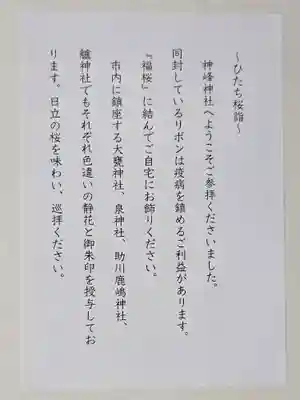 ～ひたち桜詣～
神峰神社へようこそご参拝くださいました。
同封しているリボンは疫病を鎮めるご利益があります。
『福桜』に結んでご自宅にお飾りください。
市内に鎮座する大甕神社、泉神社、助川鹿嶋神社、
艫神社でもそれぞれ色違いの静花と御朱印を授与してお
ります。日立の桜を味わい、巡拝ください。